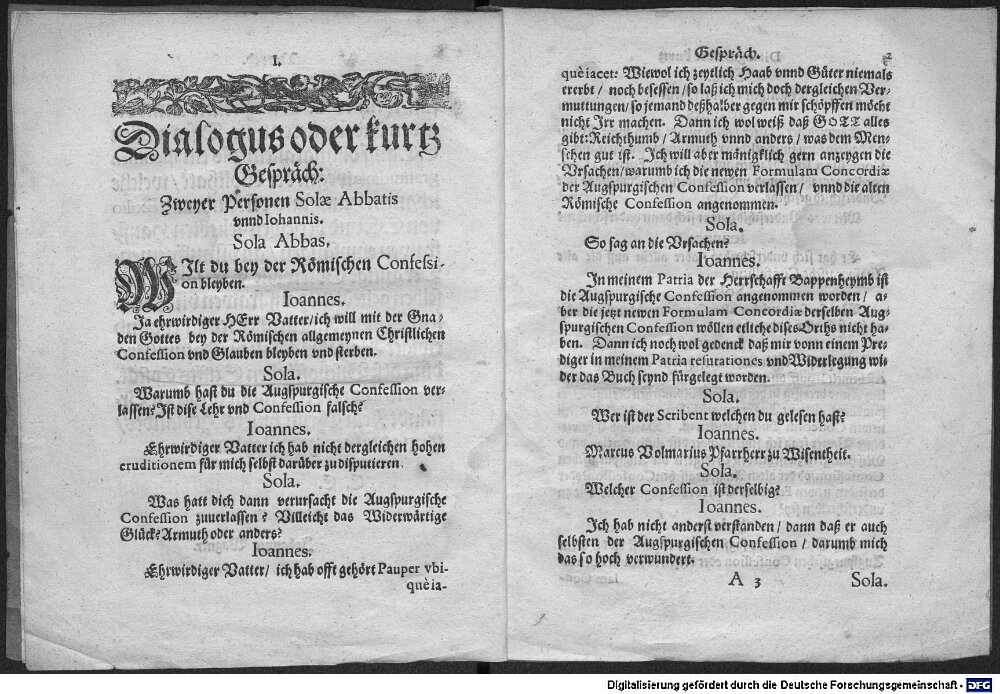 I.
Dialogus oder kurtz
Gespräch:
Zweyer Personen Solæ Abbatis
vnnd Iohannis.
Sola Abbas.
WIlt du bey der Römischen Confessi-
on bleyben.
Ioannes.
Ja ehrwirdiger HErr Vatter/ ich will mit der Gna-
den Gottes bey der Römischen allgemeynen Christlichen
Confession vnd Glauben bleyben vnd sterben.
Sola.
Warumb hast du die Augspurgische Confession ver-
lassen? Ist dise Lehr vnd Confession falsch?
Ioannes.
Ehrwirdiger Vatter ich hab nicht dergleichen hohen
eruditionem für mich selbst darüber zu disputieren.
Sola.
Was hatt dich dann verursacht die Augspurgische
Confession zuuerlassen? Villeicht das Widerwärtige
Glück? Armuth oder anders?
Ioannes.
Ehrwirdiger Vatter/ ich hab offt gehört Pauper vbi-
què ia-
Gespräch.
2
què iacet: Wiewol ich zeytlich Haab vnnd Güter niemals
ererbt / noch besessen / so laß ich mich doch dergleichen Ver-
muttungen/ so jemand deßhalber gegen mir schöpffen möcht
nicht Irr machen. Dann ich wol weiß daß GOTT alles
gibt: Reichthumb / Armuth vnnd anders / was dem Men-
schen gut ist. Ich will aber mänigklich gern anzeygen die
Vrsachen/ warumb ich die newen Formulam Concordiæ
der Augspurgischen Confession verlassen/ vnnd die alten
Römische Confession angenommen.
Sola.
So sag an die Vrsachen?
Ioannes.
In meinem Patria der Herrschafft Bappenheymb ist
die Augspurgische Confession angenommen worden / a-
ber die jetzt newen Formulam Concordiæ derselben Aug-
spurgischen Confession wöllen etliche dises Orths nicht ha-
ben. Dann ich noch wol gedenck daß mir vonn einem Pre-
diger in meinem Patria refutationes vnd Widerlegung wi-
der das Buch seynd fürgelegt worden.
Sola.
Wer ist der Scribent welchen du gelesen hast?
Ioannes.
Marcus Volmarius Pfarrherr zu Wisentheit.
Sola.
Welcher Confession ist derselbig?
Ioannes.
Ich hab nicht anderst verstanden / dann daß er auch
selbsten der Augspurgischen Confession / darumb mich
das so hoch verwundert.
A 3
Sola.
Digitalisierung gefördert durch die Deutsche Forschungsgemeinschaft - DFG